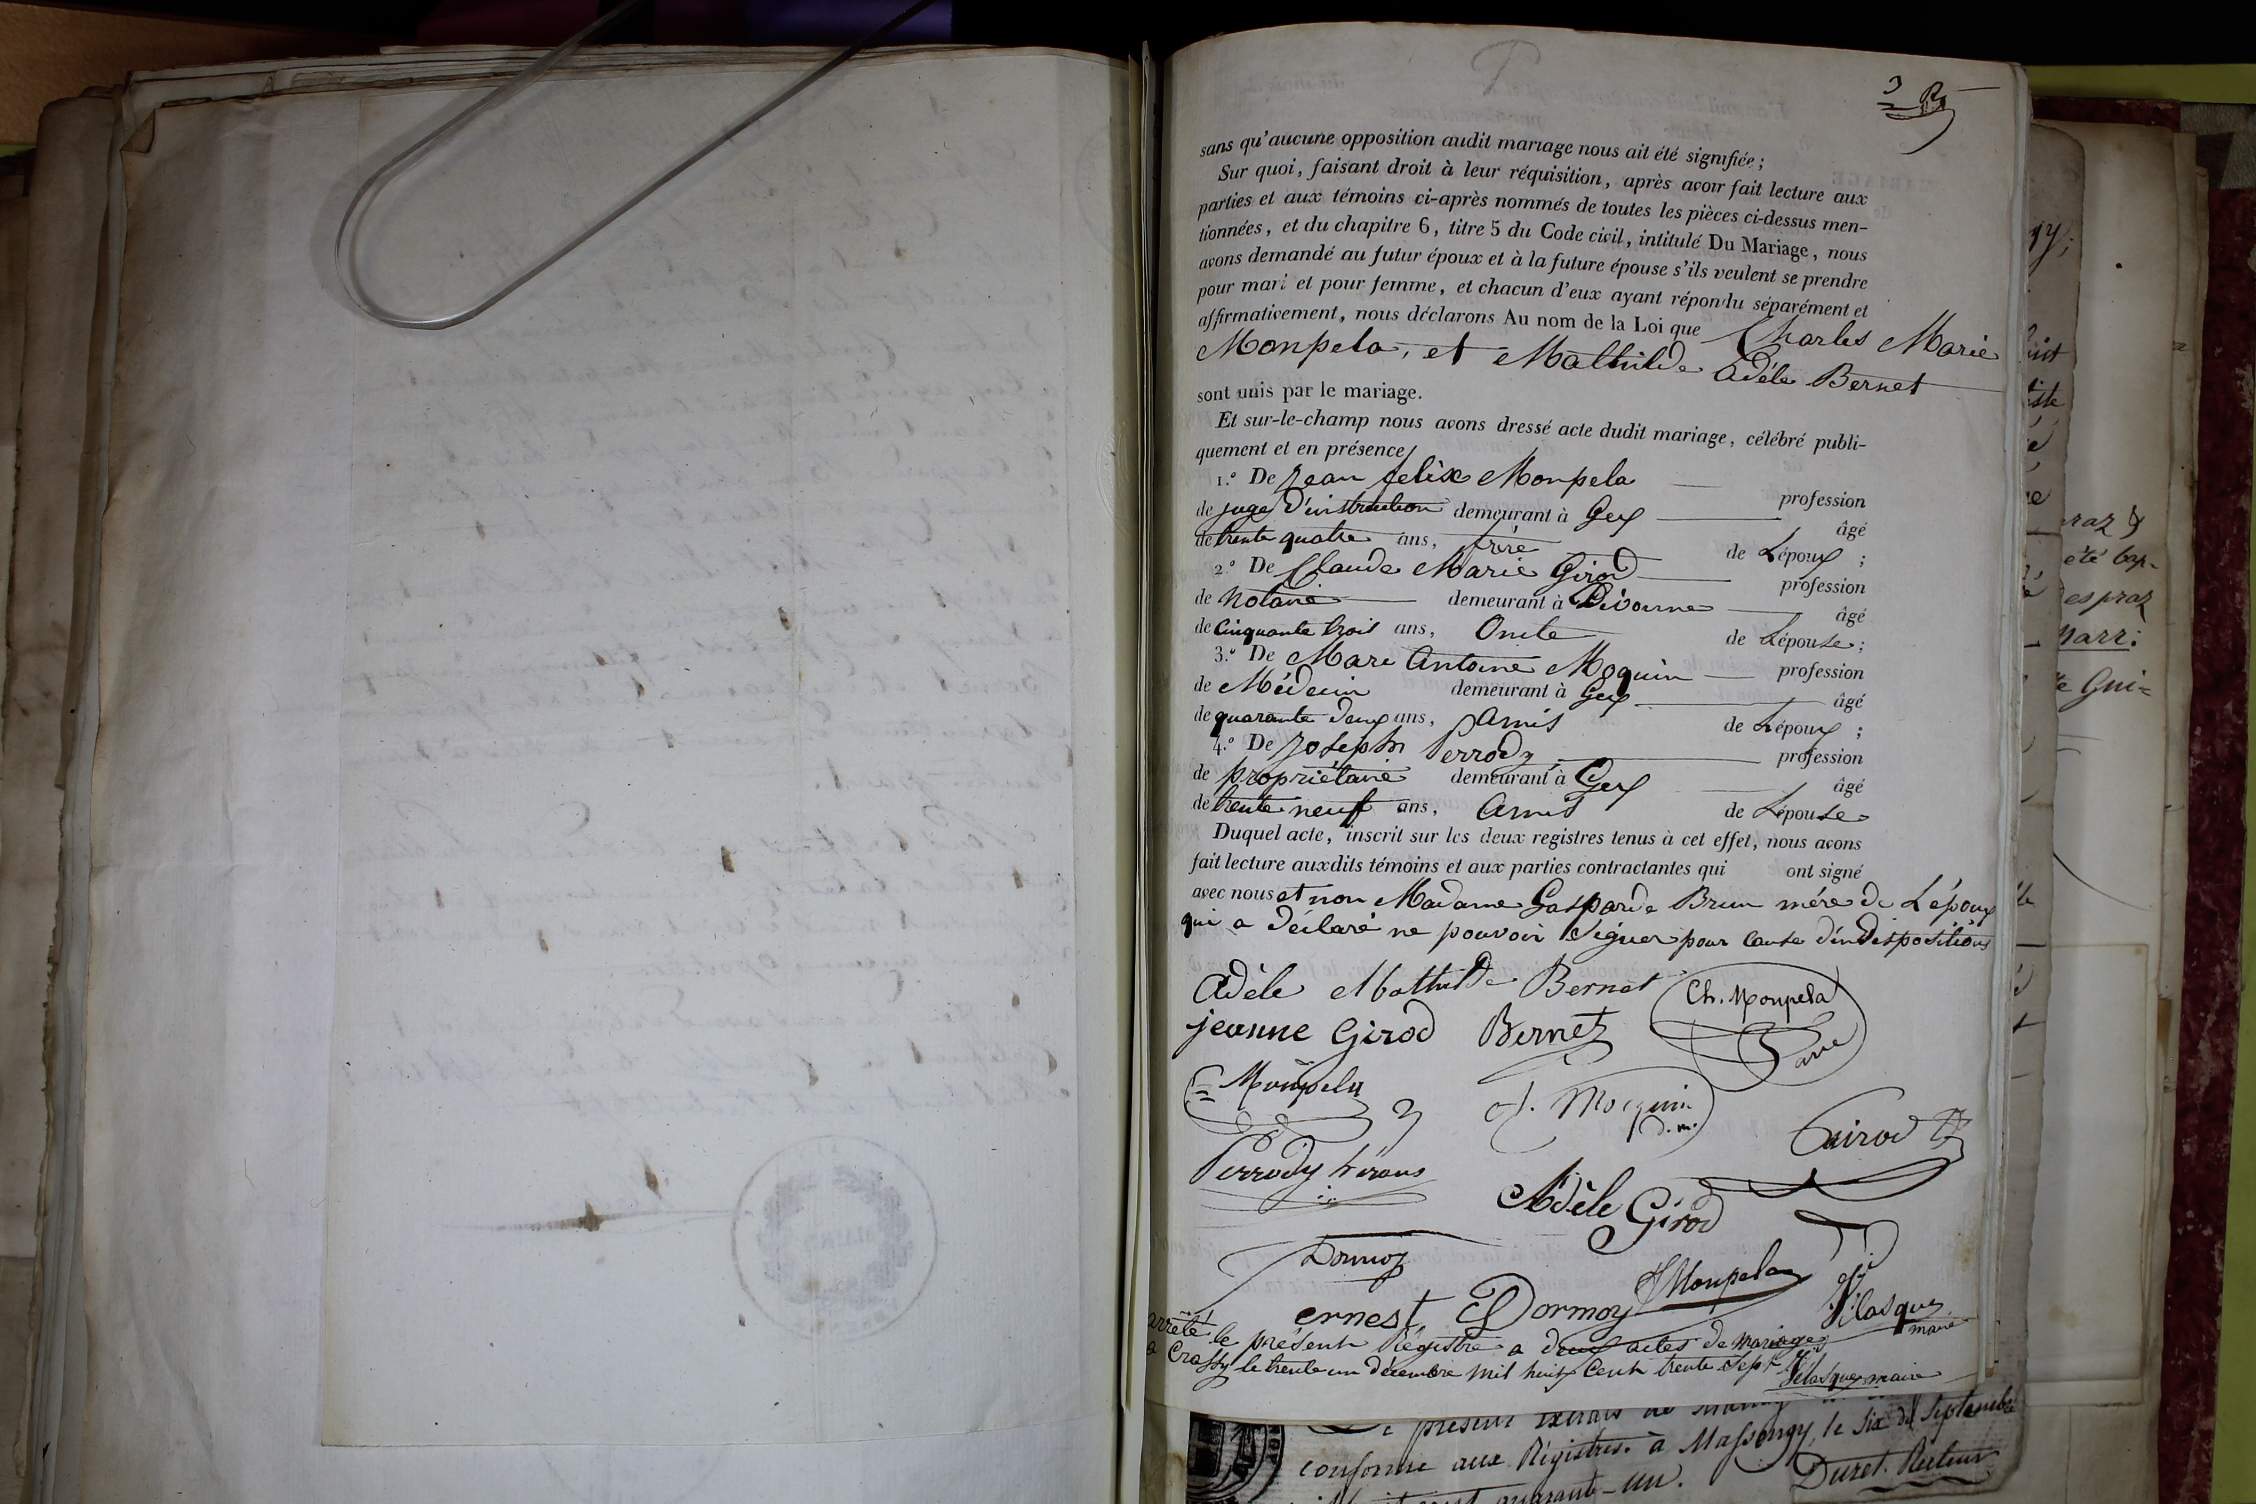 3
sans qu'aucune opposition audit mariage nous ait été signifiée;
Sur quoi, faisant droit à leur réquisition, après avoir fait lecture aux
parties et aux témoins ci-après nommés de toutes les pièces ci-dessus men-
tionnées, et du chapitre 6, titre 5 du Code civil, intitulé Du Mariage, nous
avons demandé au futur époux et à la future épouse s'ils veulent se prendre
pour mari et pour femme, et chacun d'eux ayant répondu séparément et
affirmativement, nous déclarons Au nom de la Loi que Charles Marie
Monpela, et Mathilde Adéle Bernet
sont unis par le mariage.
Et sur-le-champ nous avons dressé acte dudit mariage, célébré publi-
quement et en présence
1.° De Jean felix Monpela profession
de juge d'instruction demeurant à Gex âgé
de trente quatre ans, frére de Lépoux ;
2.° De Claude Marie Girod profession
de Notaire demeurant à Divonne âgé
de Cinquante trois ans, Oncle de Lépouse;
3.° De Marc Antoine Moquin profession
de Médecin demeurant à Gex âgé
de quarante deux ans, Amis de Lépoux ;
4.° De Joseph Perrody profession
de propriétaire demeurant à Gex âgé
de trente neuf ans, Amis de Lépouse
Duquel acte, inscrit sur les deux registres tenus à cet effet, nous avons
fait lecture auxdits témoins et aux parties contractantes qui ont signé
avec nous et non Madame Gasparde Brun mére de Lépoux
qui a déclaré ne pouvoir Signer pour Cause d'indispositions
Adèle Mathilde Bernet Ch. Monpela
jeanne Girod Bernet
Monpela Moquin d.m.
Girod
Perrody
Adèle Girod
Dormoy
ernest Dormoy Monpela Vélasque maire
arrêté le présent Régistre a deux actes de mariages
a Crassy le trente un décembre mil huit Cent trente Sept Vélasque maire
Le présent extrait
conforme aux Régistres. à Massongy, le six de Septembre
quarante-un. Duret. Recteur
gy;
raz &
été bap-
espraz
Marr:
te Gui=